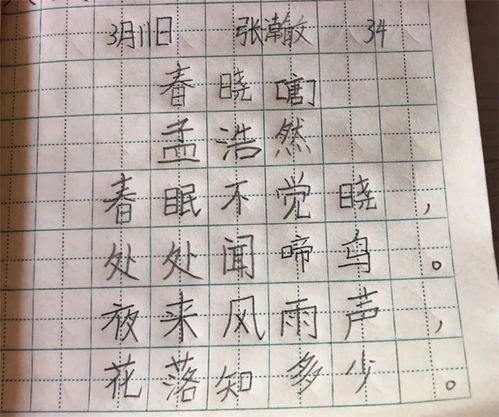 3月11日 张瀚文 34
春晓[唐]
孟浩然
春眠不觉晓，
处处闻啼鸟。
夜来风雨声，
花落知多少。